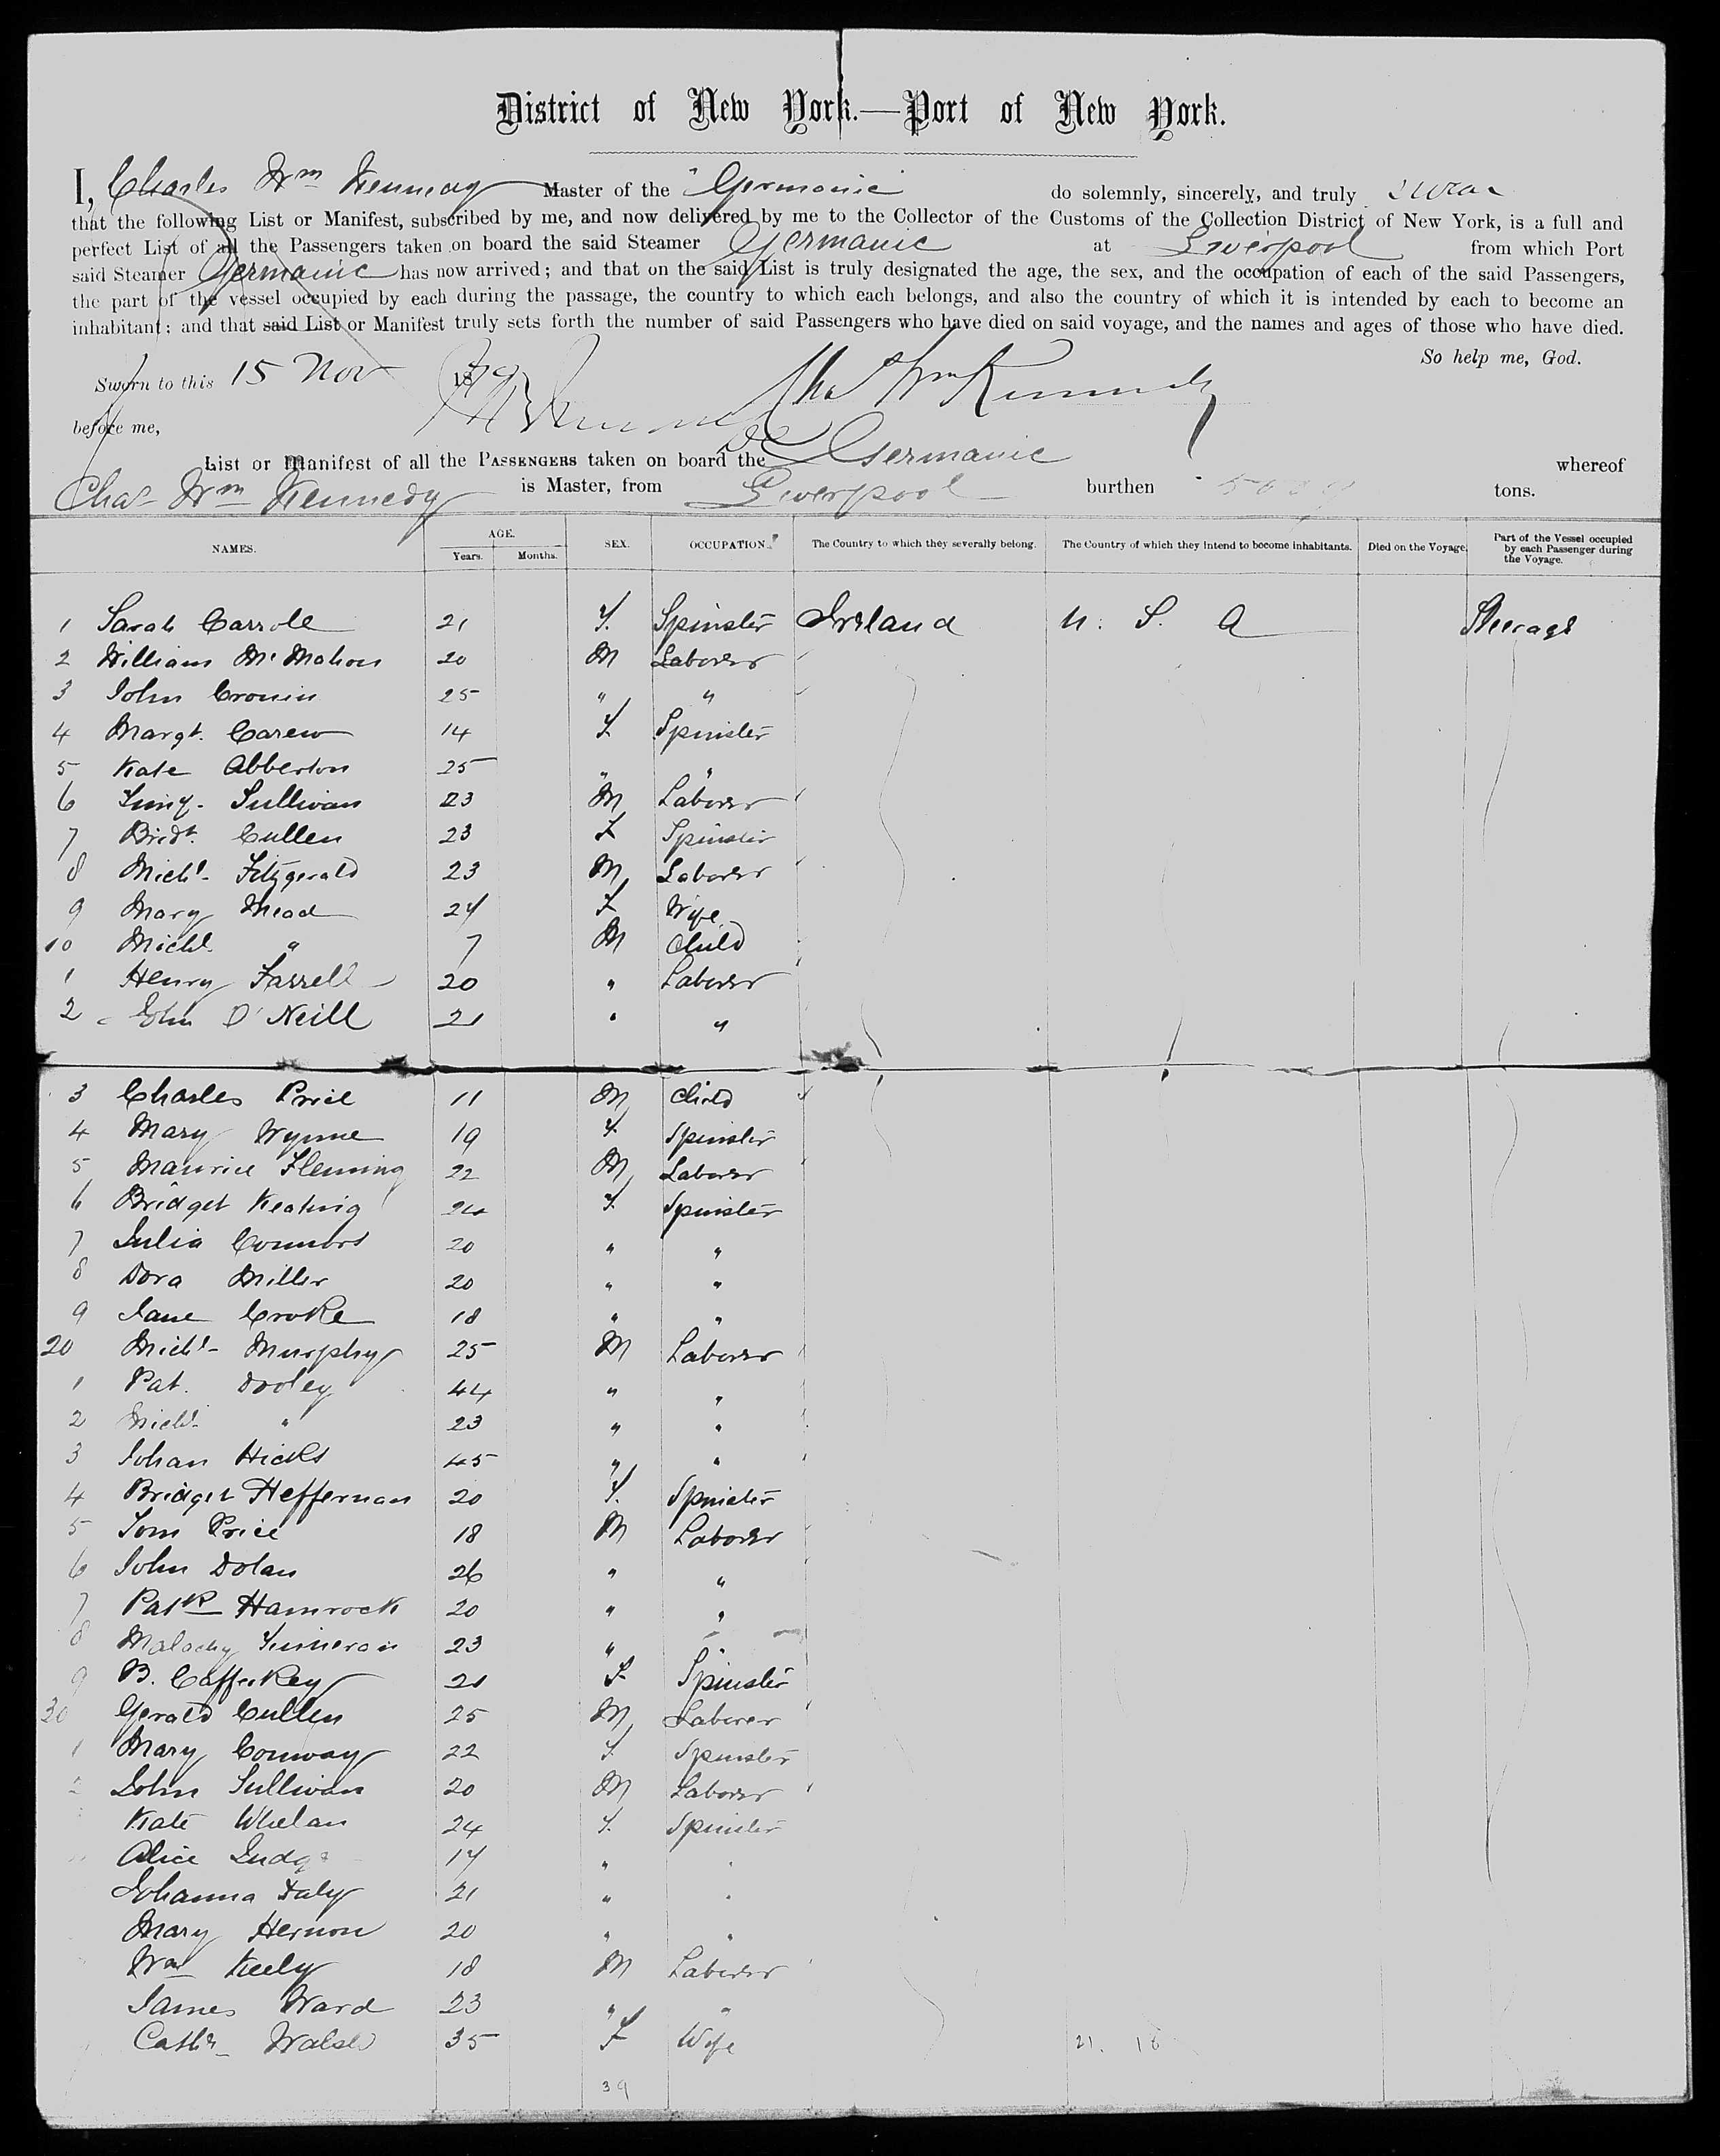 District of New York.—Port of New York.
I, Charles Wm Kennedy Master of the "Germanic do solemnly, sincerely, and truly swear
that the following List or Manifest, subscribed by me, and now delivered by me to the Collector of the Customs of the Collection District of New York, is a full and
perfect List of all the Passengers taken on board the said Steamer Germanic at Liverpool from which Port
said Steamer Germanic has now arrived; and that on the said List is truly designated the age, the sex, and the occupation of each of the said Passengers,
the part of the vessel occupied by each during the passage, the country to which each belongs, and also the country of which it is intended by each to become an
inhabitant; and that said List or Manifest truly sets forth the number of said Passengers who have died on said voyage, and the names and ages of those who have died.
So help me, God.
Sworn to this 15 Nov 1879 Chas Wm Kennedy
before me,
List or Manifest of all the PASSENGERS taken on board the Germanic whereof
Chas Wm Kennedy is Master, from Liverpool burthen tons.
NAMES. AGE. Years. Months. SEX. OCCUPATION. The Country to which they severally belong. The Country of which they intend to become inhabitants. Died on the Voyage. Part of the Vessel occupied by each Passenger during the Voyage.
1 Sarah Carroll 21 F. Spinster Ireland U. S. A Steerage
2 William Mc Mahon 20 M Laborer
3 John Cronin 25 " "
4 Margt. Carew 14 F Spinster
5 Kate Abberton 25 " "
6 Timy. Sullivan 23 M Laborer
7 Bridt. Cullen 23 F Spinster
8 Michl. Fitzgerald 23 M Laborer
9 Mary Mead 24 F Wife
10 Michl. " 7 M Child
1 Henry Farrell 20 " Laborer
2 John O'Neill 21 " "
3 Charles Price 11 M Child
4 Mary Wynne 19 F. Spinster
5 Maurice Fleming 22 M Laborer
6 Bridget Keating 24 F. Spinster
7 Julia Connors 20 " "
8 Dora Miller 20 " "
9 Jane Croke 18 " "
20 Michl. Murphy 25 M Laborer
1 Pat. Dooley 44 " "
2 Michl. " 23 " "
3 Johan Hicks 45 " "
4 Bridget Heffernan 20 F. Spinster
5 Tom Price 18 M Laborer
6 John Dolan 26 " "
7 Patk Hamrock 20 " "
8 Malachy Finneran 23 " "
9 B. Cafferkey 21 F Spinster
30 Gerald Cullen 25 M Laborer
1 Mary Conway 22 F. Spinster
2 John Sullivan 20 M Laborer
Kate Whelan 24 F. Spinster
Alice Judge 17 " "
Johanna Daly 21 " "
Mary Hernon 20 " "
Wm Keely 18 M Laborer
James Ward 23 " "
Cathn Walsh 35 F Wife 21. 18
39